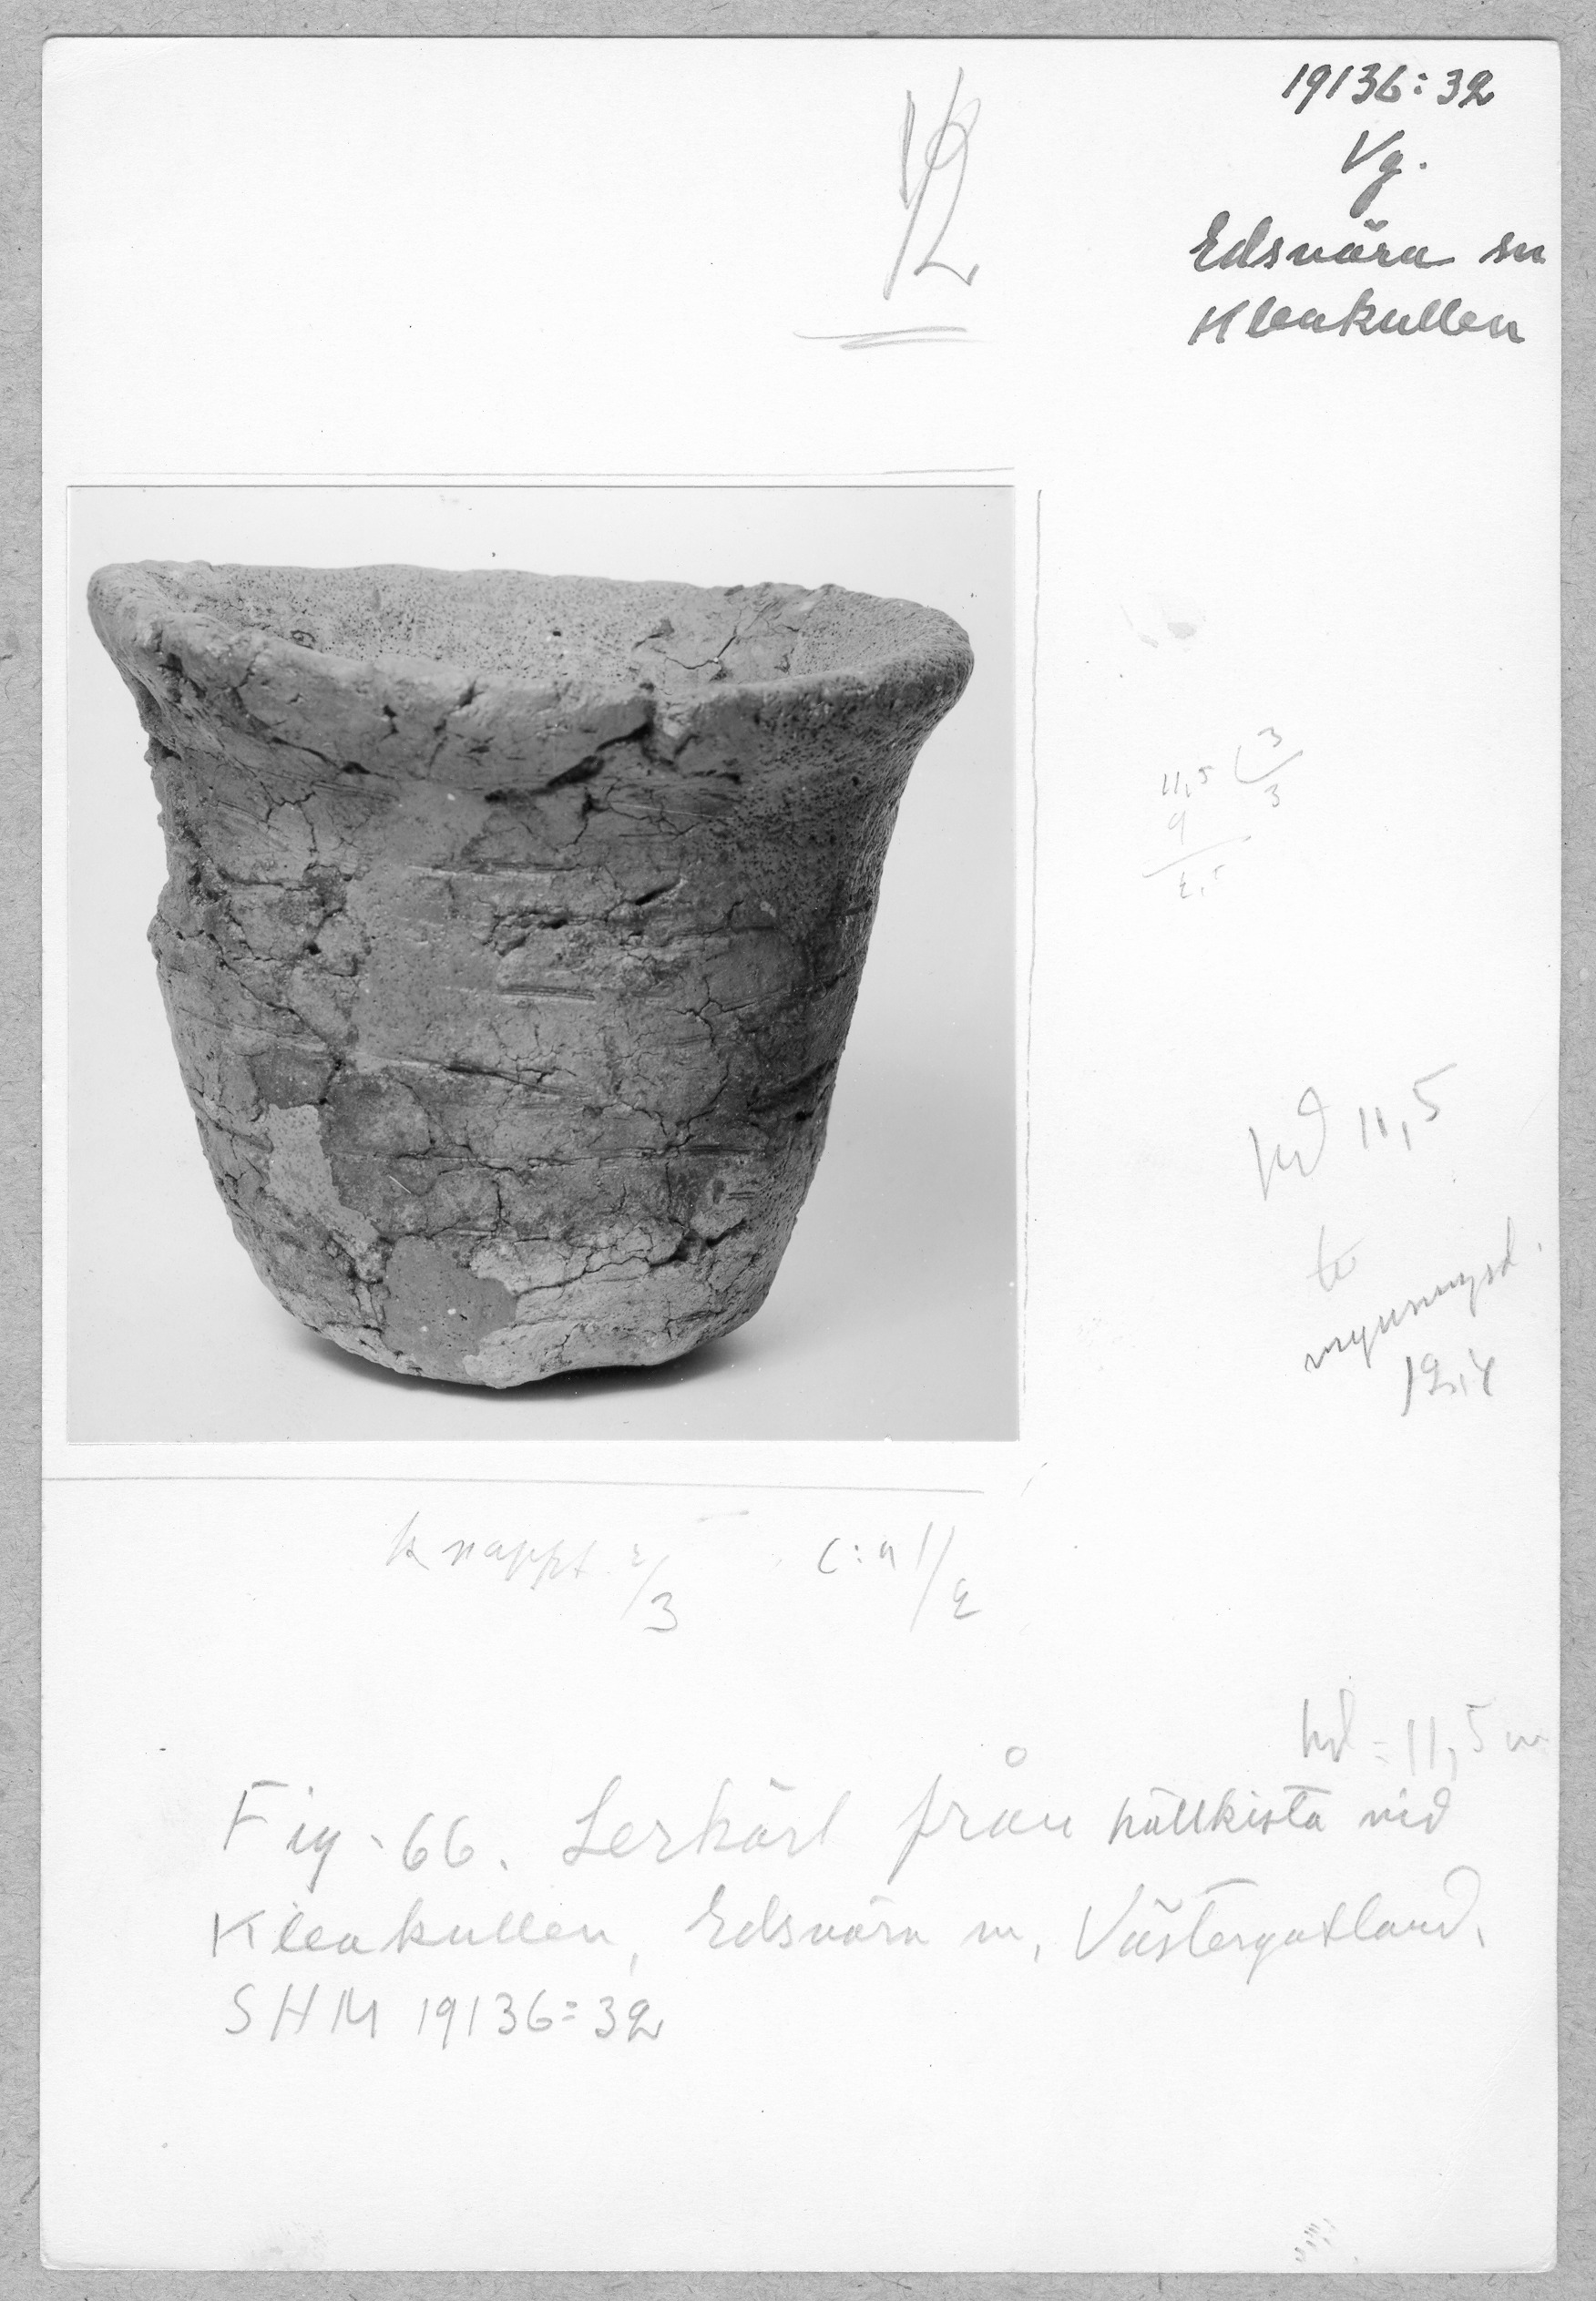 1/2
19136:32
Vg.
Edsvära sn
Kleakullen
11,5
3
3
9
2,5
hd 11,5
mynningsd.
12,4
knappt 2/3 c:a 1/2
hd = 11,5
Fig. 66. Lerkärl från hällkista vid
Kleakullen, Edsvära sn, Västergötland.
SHM 19136:32